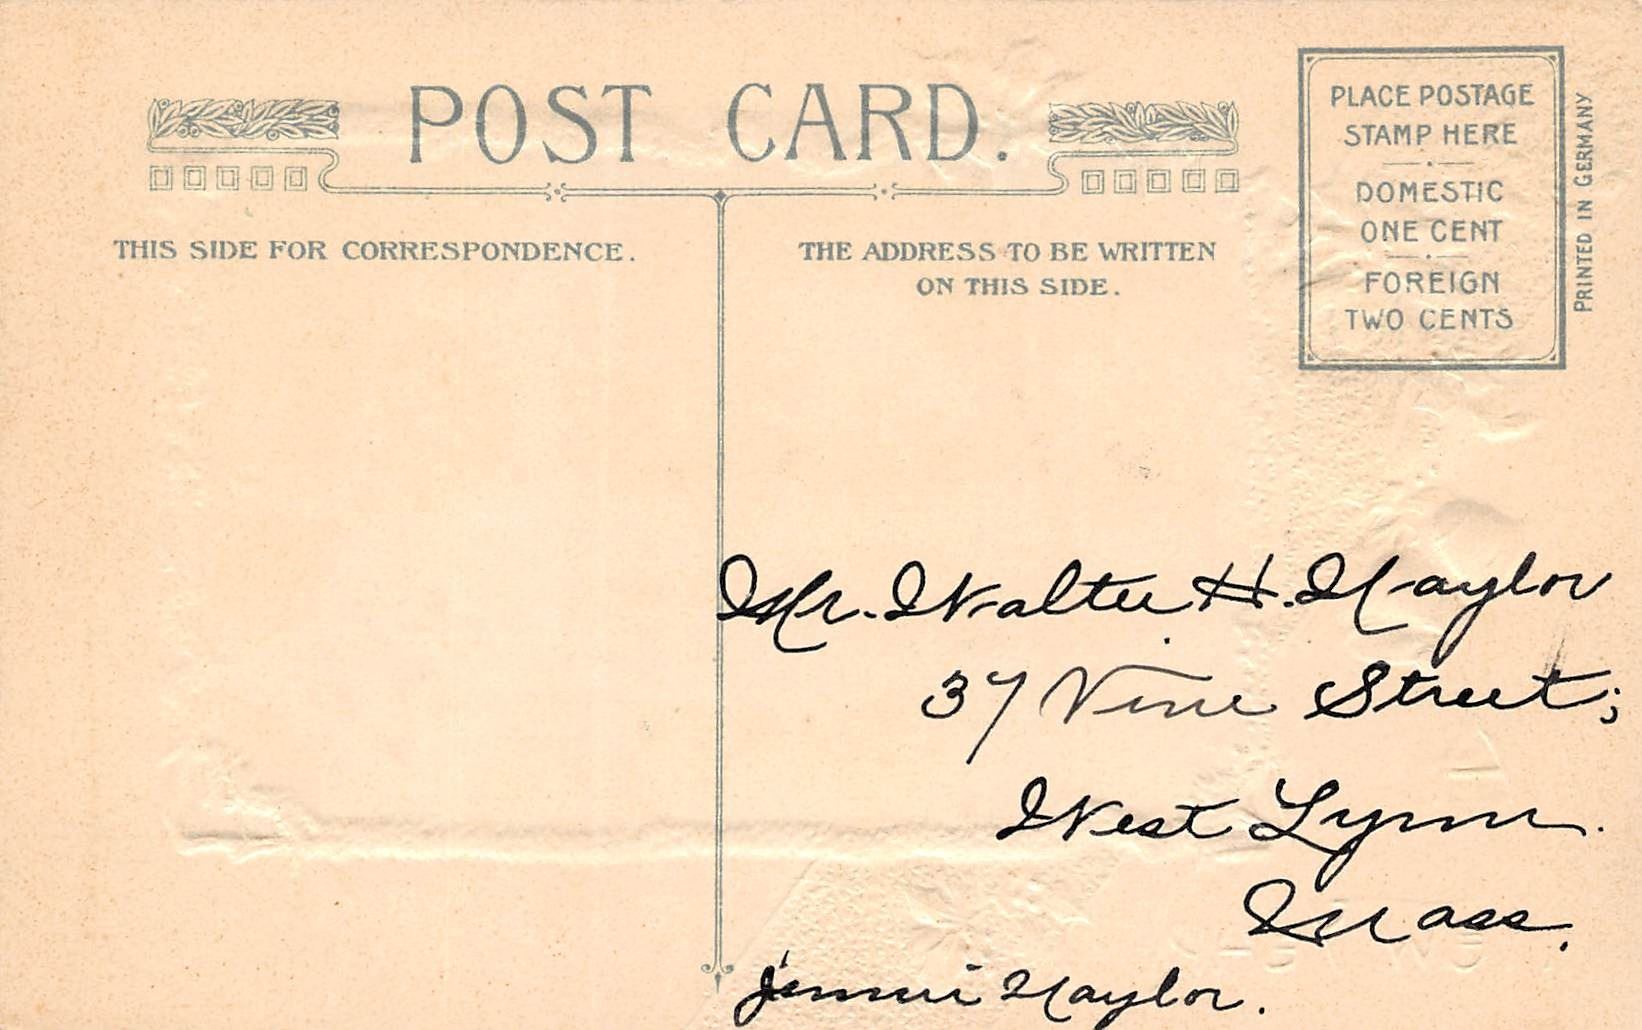 POST CARD.
THIS SIDE FOR CORRESPONDENCE.
THE ADDRESS TO BE WRITTEN
ON THIS SIDE.
PLACE POSTAGE
STAMP HERE
DOMESTIC
ONE CENT
FOREIGN
TWO CENTS
PRINTED IN GERMANY
Mr. Walter H. Naylor
37 Vine Street;
West Lynn.
Mass.
Jennie Naylor.